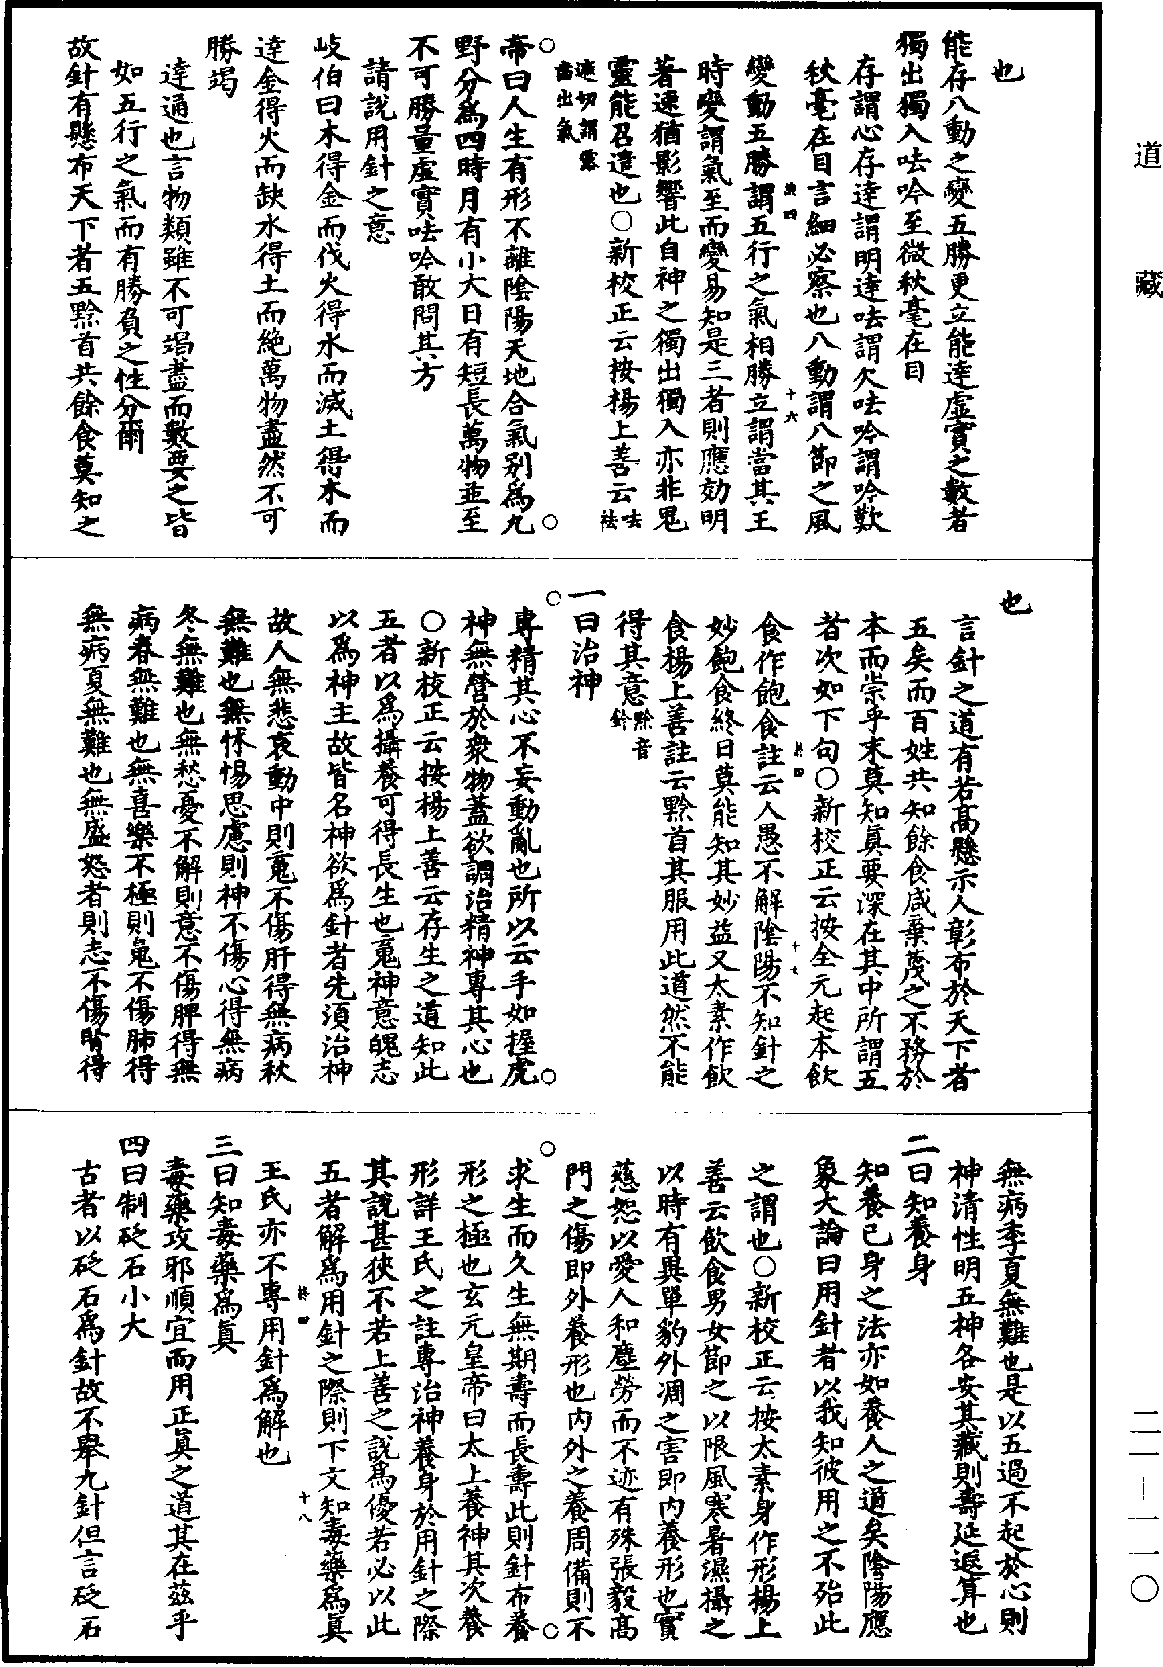 道藏
二一-一一〇
也
能存八動之變五勝更立能達虛實之數者
獨出獨入呿吟至微秋毫在目
存謂心存達謂明達呿謂欠呿吟謂吟歎
秋毫在目言細必察也八動謂八節之風
十六
變動五勝謂五行之氣相勝立謂當其王
時變謂氣至而變易知是三者則應効明
著速猶影響此自神之獨出獨入亦非鬼
靈能召遣也○新校正云按楊上善云呿
袪
遮切謂露
齒出氣
帝曰人生有形不離陰陽天地合氣别爲九
野分爲四時月有小大日有短長萬物並至
不可勝量虛實呿吟敢問其方
請說用針之意
岐伯曰木得金而伐火得水而滅土得木而
達金得火而缺水得土而絶萬物盡然不可
勝竭
達通也言物類雖不可竭盡而數要之皆
如五行之氣而有勝負之性分爾
故針有懸布天下者五黔首共餘食莫知之
也
言針之道有若高懸示人彰布於天下者
五矣而百姓共知餘食咸棄蔑之不務於
本而崇乎末莫知眞要深在其中所謂五
者次如下句○新校正云按全元起本飲
十七
食作飽食註云人愚不解陰陽不知針之
妙飽食終日莫能知其妙益又太素作飲
食楊上善註云黔首其服用此道然不能
得其意黔音
鈐
一曰治神
專精其心不妄動亂也所以云手如握虎
神無營於衆物蓋欲調治精神專其心也
○新校正云按楊上善云存生之道知此
五者以爲攝養可得長生也䰟神意魄志
以爲神主故皆名神欲爲針者先須治神
故人無悲哀動中則䰟不傷肝得無病秋
無難也無怵惕思慮則神不傷心得無病
冬無難也無愁憂不解則意不傷脾得無
病春無難也無喜樂不極則䰟不傷肺得
無病夏無難也無盛怒者則志不傷腎得
無病季夏無難也是以五過不起於心則
神清性明五神各安其藏則壽延遐算也
二曰知養身
知養已身之法亦如養人之道矣陰陽應
象大論曰用針者以我知彼用之不殆此
之謂也○新校正云按太素身作形楊上
善云飲食男女節之以限風寒暑濕攝之
以時有異單豹外凋之害即内養形也實
慈恕以愛人和塵勞而不迹有殊張毅高
門之傷即外養形也内外之養周備則不
求生而久生無期壽而長壽此則針布養
形之極也玄元皇帝曰太上養神其次養
形詳王氏之註專治神養身於用針之際
其說甚狹不若上善之說爲優若必以此
五者解爲用針之際則下文知毒藥爲眞
十八
王氏亦不專用針爲解也
三曰知毒藥爲眞
毒藥攻邪順宜而用正眞之道其在茲乎
四曰制砭石小大
古者以砭石爲針故不舉九針但言砭石